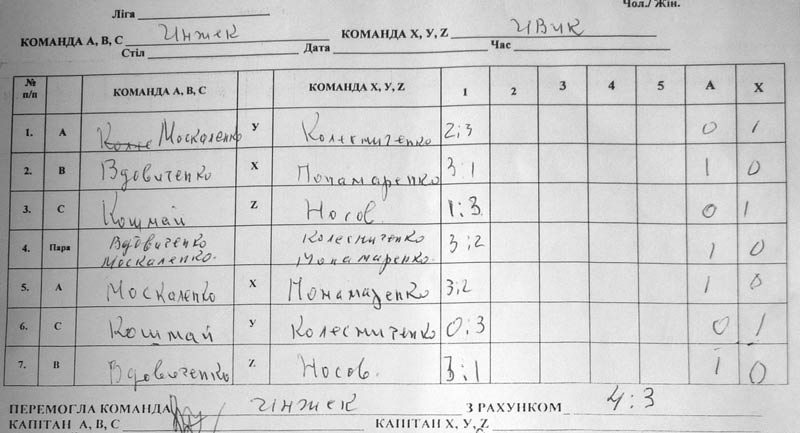 Чол./ Жін.
Ліга
КОМАНДА А, В, С Инжек КОМАНДА Х, У, Z ИВик
Стіл Дата Час
№ п/п КОМАНДА А, В, С КОМАНДА Х, У, Z 1 2 3 4 5 А Х
1. А Москаленко У Колесниченко 2:3 0 1
2. В Вдовиченко Х Понамаренко 3:1 1 0
3. С Кошмай Z Носов 1:3 0 1
4. Пара Вдовиченко Колесниченко 3:2 1 0
Москаленко. Понамаренко.
5. А Москаленко Х Понамаренко 3:2 1 0
6. С Кошмай У Колесниченко 0:3 0 1
7. В Вдовиченко Z Носов. 3:1 1 0
ПЕРЕМОГЛА КОМАНДА Инжек З РАХУНКОМ 4:3
КАПІТАН А, В, С КАПІТАН Х, У, Z